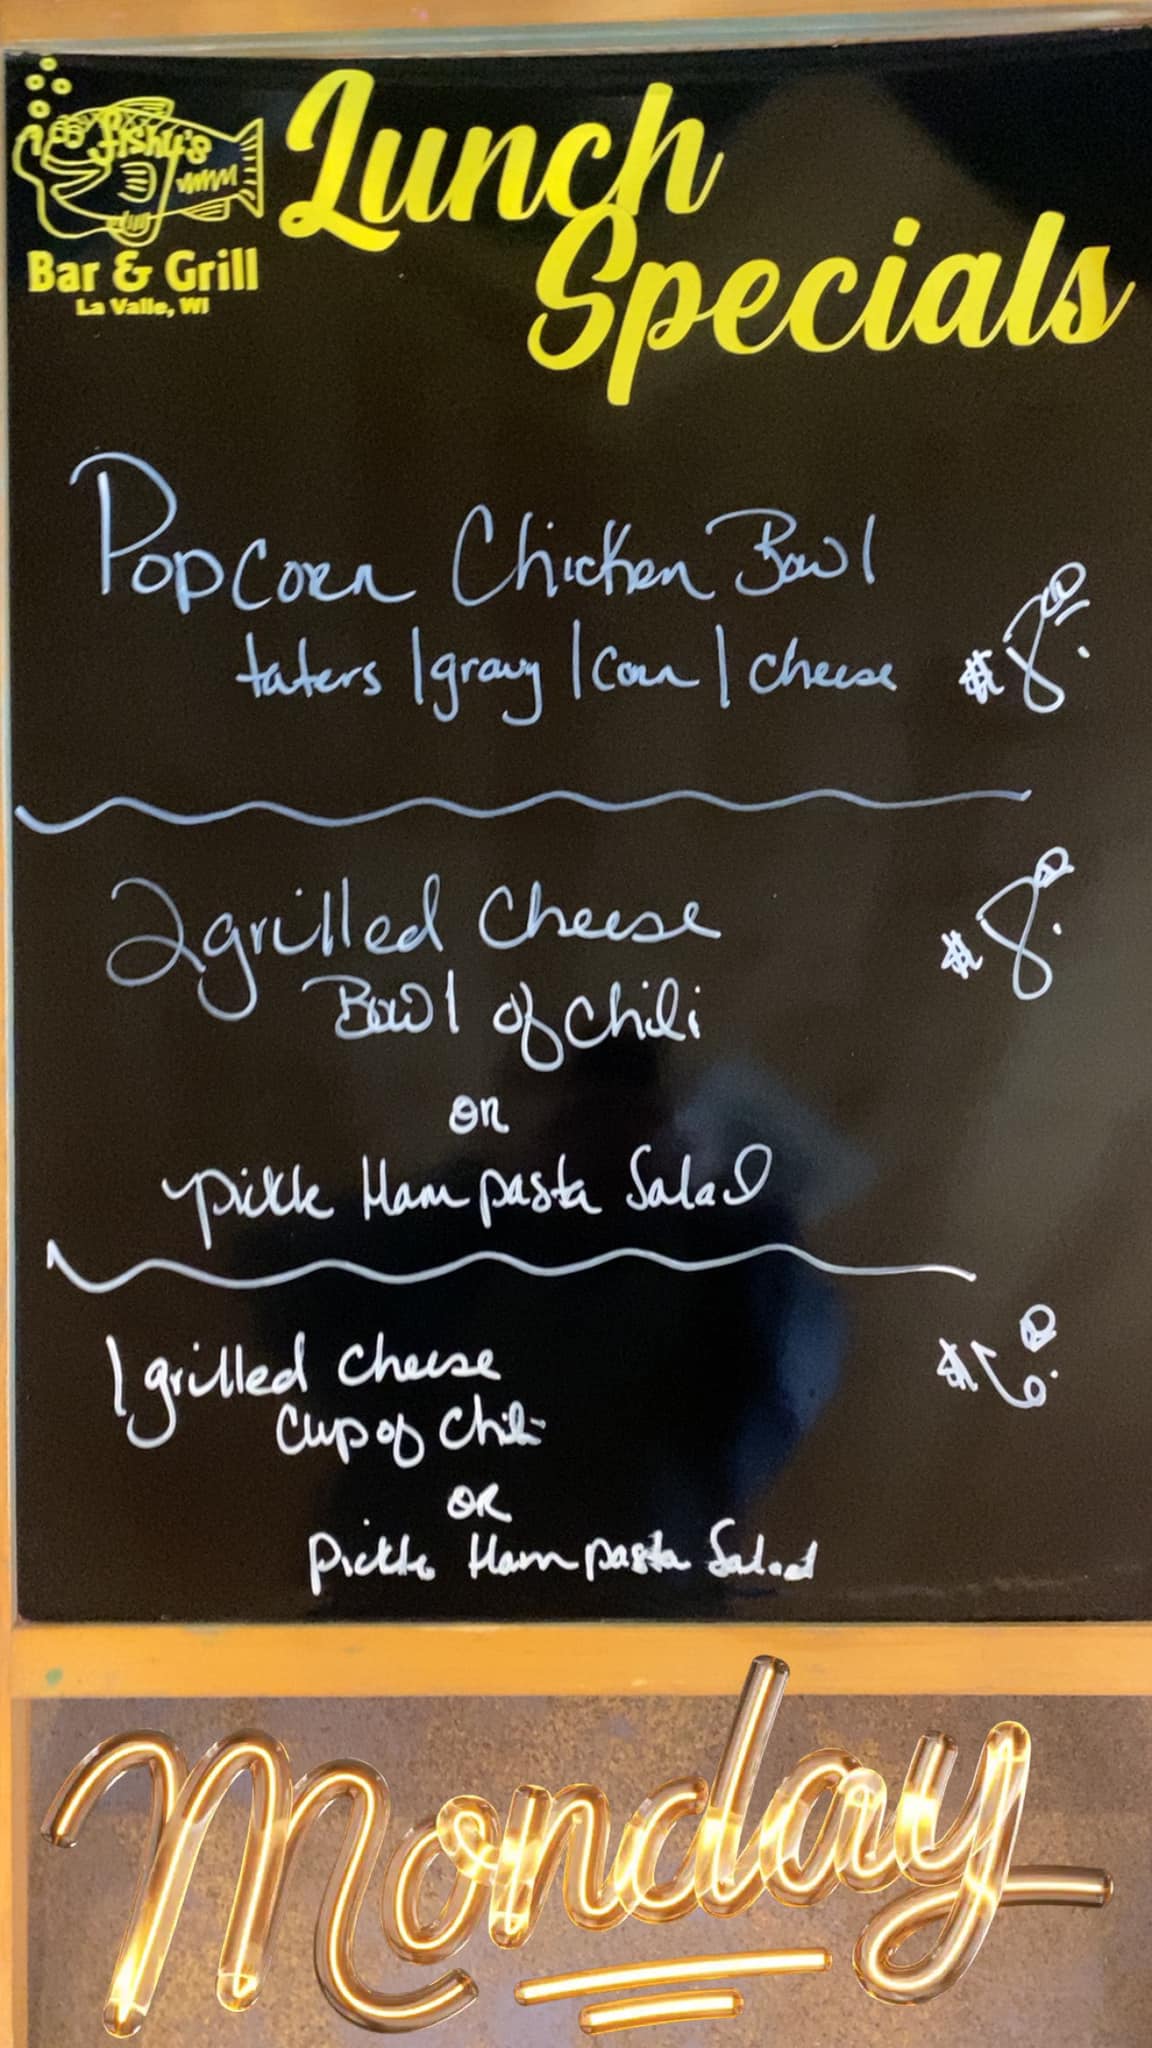 Fishy's
Bar & Grill
La Valle, WI
Lunch
Specials
Popcorn Chicken Bowl
taters / gravy / Corn / cheese $8.00
2 grilled cheese $8.00
Bowl of Chili
or
pickle Ham pasta Salad
1 grilled cheese $6.00
Cup of Chili
OR
Pickle Ham pasta Salad
Monday